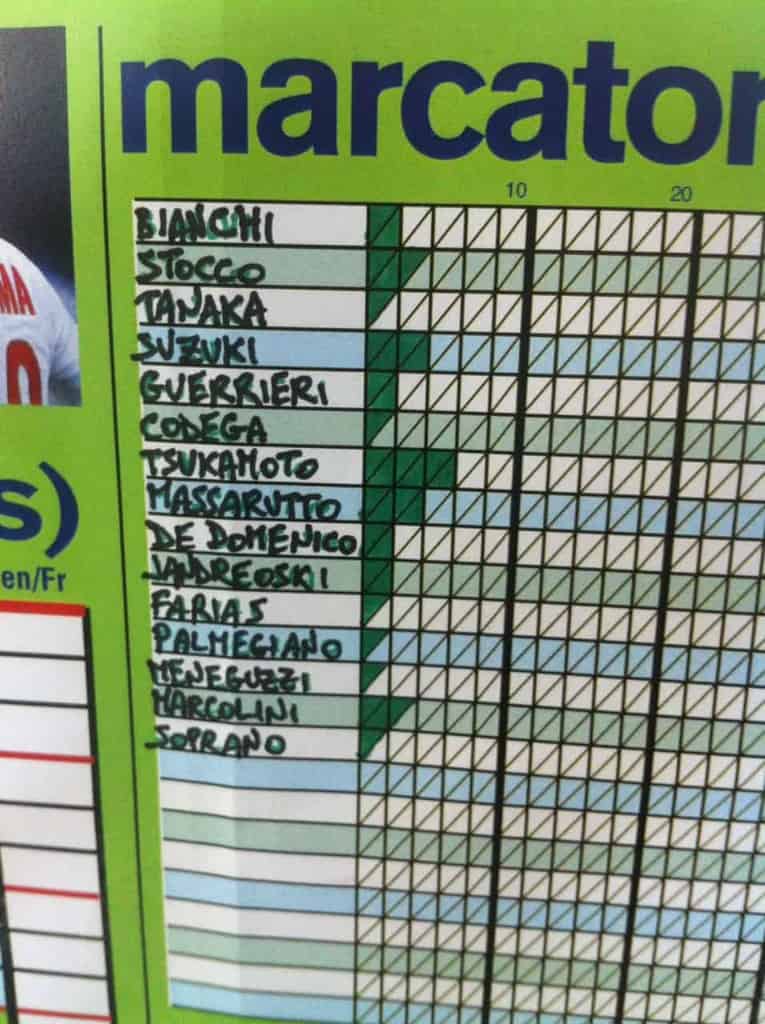 marcator
10 20
BIANCHI
STOCCO
TANAKA
SUZUKI
GUERRIERI
CODEGA
TSUKAMOTO
MASSARUTTO
DE DOMENICO
JANDREOSKI
FARIAS
PALMEGIANO
MENEGUZZI
MARCOLINI
SOPRANO
MA
0
s)
en/Fr